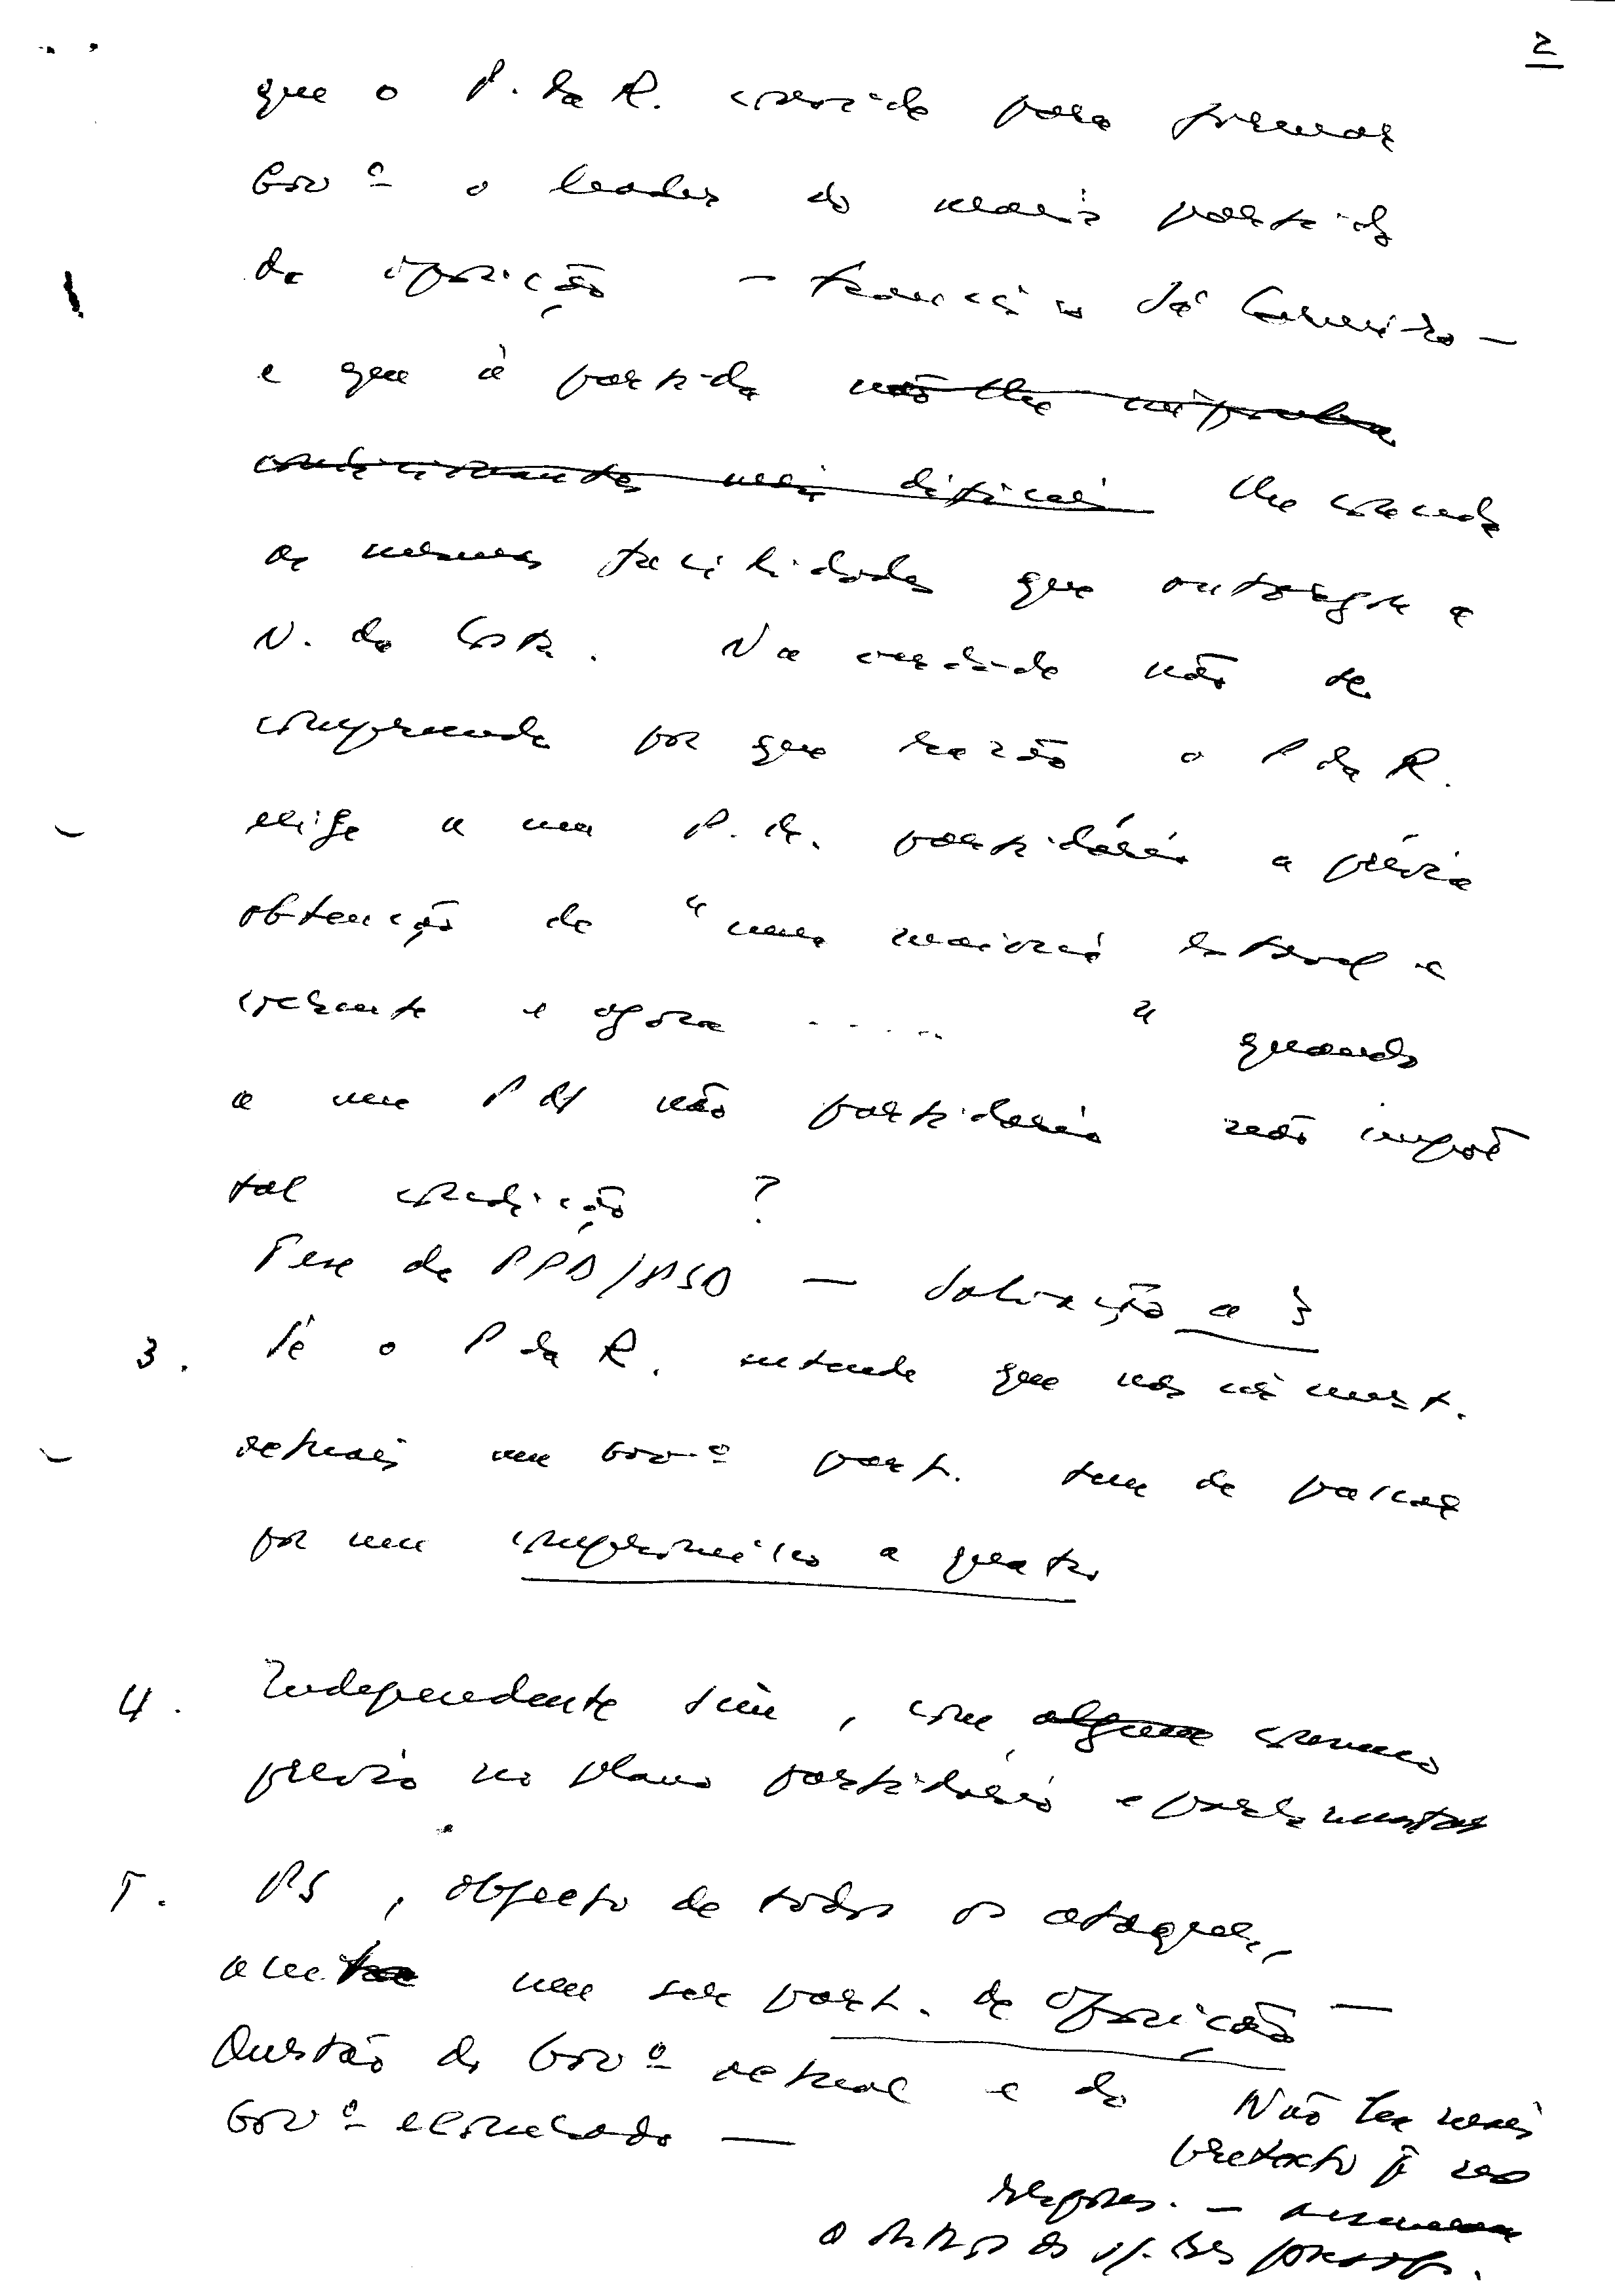 2
que o P. da R. convide para formar
Govº o leader do maior partido
da oposição – Francisco Sá Carneiro –
e que à partida não lhe imponha
condicionantes mais difíceis lhe conceda
as mesmas facilidades que outorgou a
N. da Costa. Na verdade não se
compreende por que razão o P da R.
exige a um P. M. partidário a prévia
obtenção de "uma maioria estável e
coerente e agora ..... " quando
a um PM não partidário não impõe
tal condição ?
Tese do PPD/PSD — Solução a 3
3. Se o P da R. entende que nas circunst.
actuais um Govº part. tem de passar
por um compromisso a quatro
4. Independente sim, com algum consenso
prévio no plano partidário e parlamentar
5. PS, objecto de todos os ataques,
nem ser part. de oposição —
Questão do Govº actual e do
Govº exonerado —
Não ter mais
pretexto p
respons. —